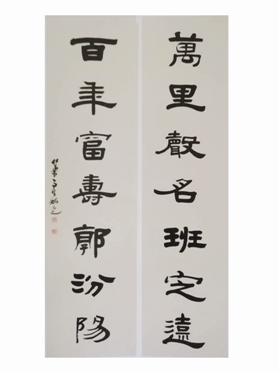 萬里聲名班定遠
百年富壽郭汾陽